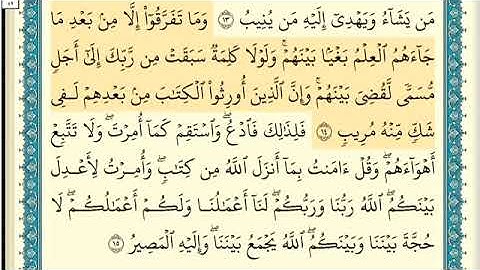 مَن يَشَآءُ وَيَهْدِىٓ إِلَيْهِ مَن يُنِيبُ ١٣ وَمَا تَفَرَّقُوٓا۟ إِلَّا مِنۢ بَعْدِ مَا
جَآءَهُمُ ٱلْعِلْمُ بَغْيًۢا بَيْنَهُمْ ۚ وَلَوْلَا كَلِمَةٌ سَبَقَتْ مِن رَّبِّكَ إِلَىٰٓ أَجَلٍ
مُّسَمًّى لَّقُضِىَ بَيْنَهُمْ ۚ وَإِنَّ ٱلَّذِينَ أُورِثُوا۟ ٱلْكِتَٰبَ مِنۢ بَعْدِهِمْ لَفِى
شَكٍّ مِّنْهُ مُرِيبٍ ١٤ فَلِذَٰلِكَ فَٱدْعُ ۖ وَٱسْتَقِمْ كَمَآ أُمِرْتَ ۖ وَلَا تَتَّبِعْ
أَهْوَآءَهُمْ ۖ وَقُلْ ءَامَنتُ بِمَآ أَنزَلَ ٱللَّهُ مِن كِتَٰبٍ ۖ وَأُمِرْتُ لِأَعْدِلَ
بَيْنَكُمُ ۖ ٱللَّهُ رَبُّنَا وَرَبُّكُمْ ۖ لَنَآ أَعْمَٰلُنَا وَلَكُمْ أَعْمَٰلُكُمْ ۖ لَا
حُجَّةَ بَيْنَنَا وَبَيْنَكُمُ ۖ ٱللَّهُ يَجْمَعُ بَيْنَنَا ۖ وَإِلَيْهِ ٱلْمَصِيرُ ١٥